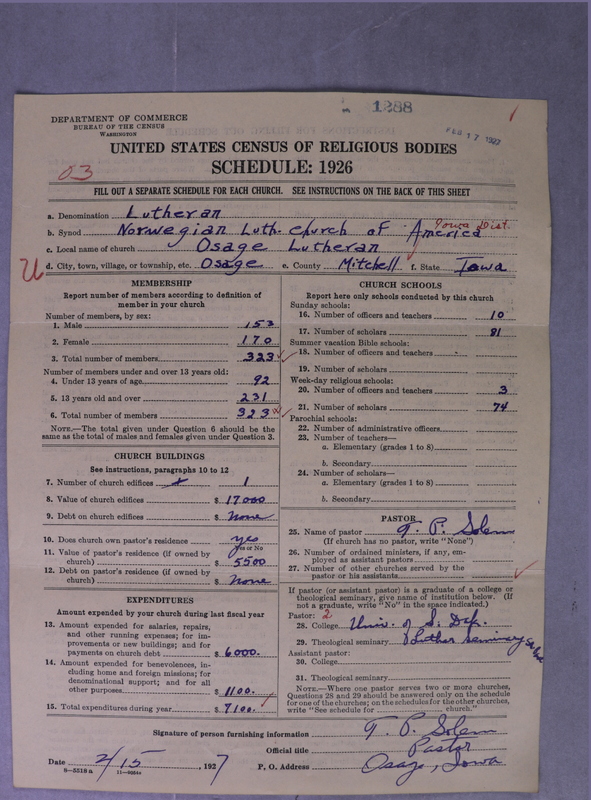 1288
FEB 17 1927
DEPARTMENT OF COMMERCE
BUREAU OF THE CENSUS
WASHINGTON
UNITED STATES CENSUS OF RELIGIOUS BODIES
03
SCHEDULE: 1926
FILL OUT A SEPARATE SCHEDULE FOR EACH CHURCH. SEE INSTRUCTIONS ON THE BACK OF THIS SHEET
a. Denomination Lutheran
b. Synod Norwegian Luth. church of America Iowa Dist.
c. Local name of church Osage Lutheran
U d. City, town, village, or township, etc. Osage e. County Mitchell f. State Iowa
MEMBERSHIP
Report number of members according to definition of
member in your church
Number of members, by sex:
1. Male 153
2. Female 170
3. Total number of members 323
Number of members under and over 13 years old:
4. Under 13 years of age 92
5. 13 years old and over 231
6. Total number of members 323
NOTE.—The total given under Question 6 should be the
same as the total of males and females given under Question 3.
CHURCH BUILDINGS
See instructions, paragraphs 10 to 12
7. Number of church edifices 1
8. Value of church edifices $ 17000
9. Debt on church edifices $ None
10. Does church own pastor's residence yes
Yes or No
11. Value of pastor's residence (if owned by
church) $ 5500
12. Debt on pastor's residence (if owned by
church) $ None
EXPENDITURES
Amount expended by your church during last fiscal year
13. Amount expended for salaries, repairs,
and other running expenses; for im-
provements or new buildings; and for
payments on church debt $ 6000.
14. Amount expended for benevolences, in-
cluding home and foreign missions; for
denominational support; and for all
other purposes $ 1100.
15. Total expenditures during year $ 7100.
CHURCH SCHOOLS
Report here only schools conducted by this church
Sunday schools:
16. Number of officers and teachers 10
17. Number of scholars 81
Summer vacation Bible schools:
18. Number of officers and teachers
19. Number of scholars
Week-day religious schools:
20. Number of officers and teachers 3
21. Number of scholars 74
Parochial schools:
22. Number of administrative officers
23. Number of teachers—
a. Elementary (grades 1 to 8)
b. Secondary
24. Number of scholars—
a. Elementary (grades 1 to 8)
b. Secondary
PASTOR
25. Name of pastor T. P. Solem
(If church has no pastor, write "None")
26. Number of ordained ministers, if any, em-
ployed as assistant pastors
27. Number of other churches served by the
pastor or his assistants
If pastor (or assistant pastor) is a graduate of a college or
theological seminary, give name of institution below. (If
not a graduate, write "No" in the space indicated.)
Pastor: 2
28. College Univ. of S. Dak.
29. Theological seminary Luther Seminary
Assistant pastor:
30. College
31. Theological seminary
NOTE.—Where one pastor serves two or more churches,
Questions 28 and 29 should be answered only on the schedule
for one of the churches; on the schedules for the other churches,
write "See schedule for church."
Signature of person furnishing information T. P. Solem
Official title Pastor
Date 2/15, 1927 P. O. Address Osage, Iowa
8—5518 a